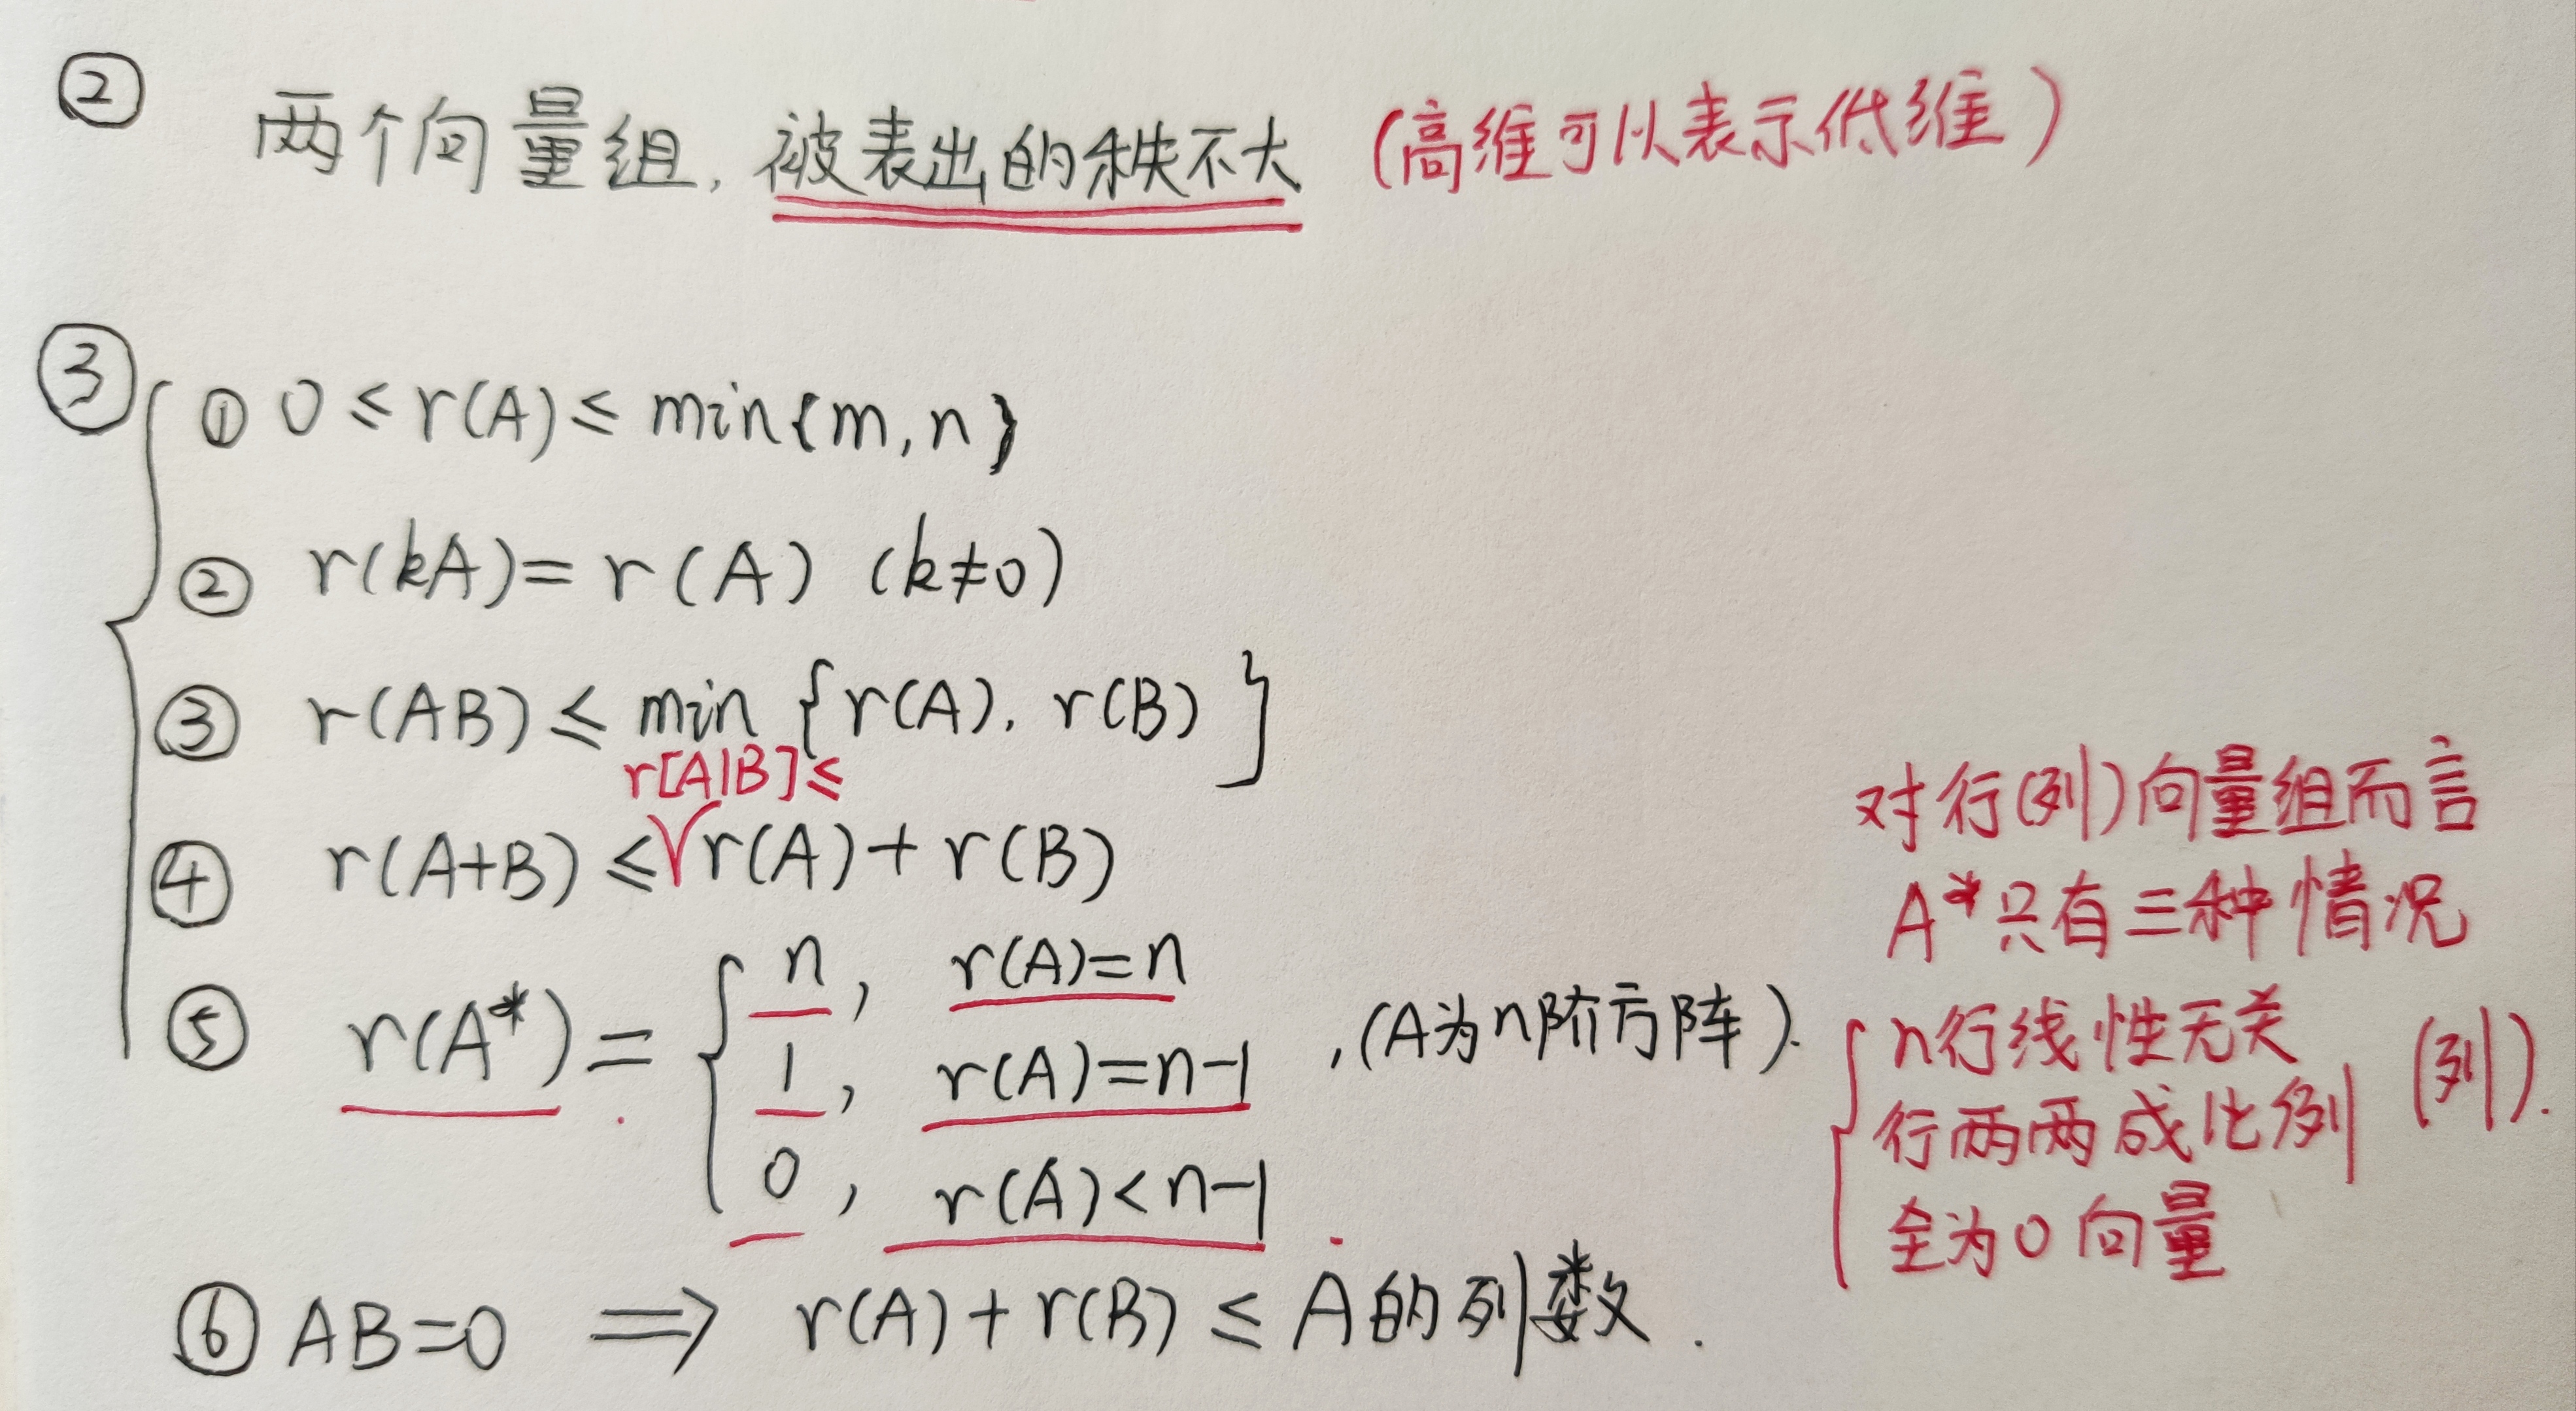 ②
两个向量组，被表出的秩不大 (高维可以表示低维)
③
① 0 ≤ r(A) ≤ min{m, n}
② r(kA) = r(A) (k≠0)
③ r(AB) ≤ min {r(A), r(B)}
r[A|B] ≤
④ r(A+B) ≤ √ r(A) + r(B)
⑤ r(A*) = { n, r(A)=n
1, r(A)=n-1 ,(A为n阶方阵).
0, r(A)<n-1.
⑥ AB=0 ⟹ r(A)+r(B) ≤ A的列数.
对行(列)向量组而言
A*只有三种情况
n行线性无关
行两两成比例 (列).
全为0向量